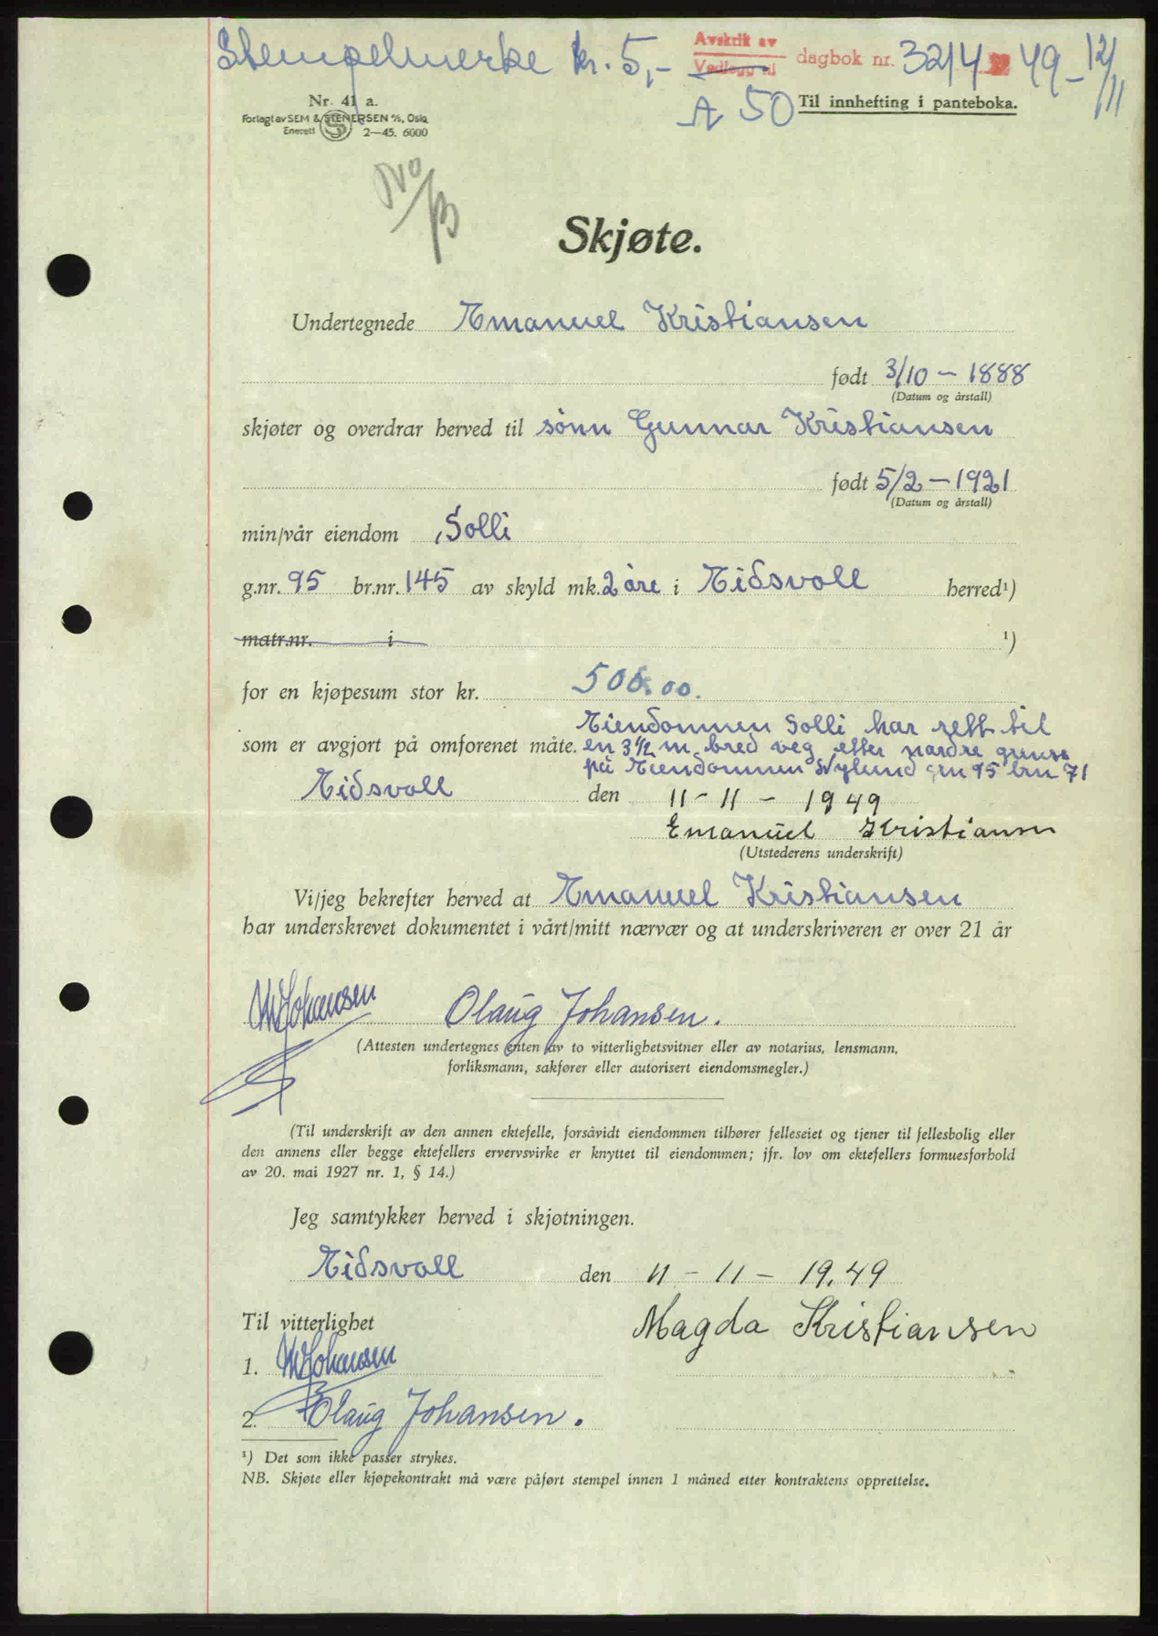 Stempelmerke kr. 5,- Avskrik av dagbok nr. 3214 49 - 12/11
Vedlegg til
Nr. 41 a.
A 50 Til innhefting i panteboka.
Forlagt av SEM & STENERSEN A/S, Oslo
Enerett 2—45. 6000
Skjøte.
Undertegnede Emanuel Kristiansen
født 3/10 - 1888
(Datum og årstall)
skjøter og overdrar herved til sønn Gunnar Kristiansen
født 5/2 - 1921
(Datum og årstall)
min/vår eiendom Solli
g.nr. 95 br.nr. 145 av skyld mk. 2 øre i Eidsvoll herred¹)
matr.nr. i ¹)
for en kjøpesum stor kr. 500.00.
Eiendommen Solli har rett til
som er avgjort på omforenet måte. en 3 1/2 m. bred veg etter nordre grense
på Eiendommen Nylund gn 95 bn 71
Eidsvoll den 11 - 11 - 1949
Emanuel Kristiansen
(Utstederens underskrift)
Vi/jeg bekrefter herved at Emanuel Kristiansen
har underskrevet dokumentet i vårt/mitt nærvær og at underskriveren er over 21 år
Johansen Olaug Johansen.
(Attesten undertegnes enten av to vitterlighetsvitner eller av notarius, lensmann,
forliksmann, sakfører eller autorisert eiendomsmegler.)
(Til underskrift av den annen ektefelle, forsåvidt eiendommen tilhører felleseiet og tjener til fellesbolig eller
den annens eller begge ektefellers ervervsvirke er knyttet til eiendommen; jfr. lov om ektefellers formuesforhold
av 20. mai 1927 nr. 1, § 14.)
Jeg samtykker herved i skjøtningen.
Eidsvoll den 11 - 11 - 19.49
Til vitterlighet Magda Kristiansen
1. Johansen
2. Olaug Johansen.
¹) Det som ikke passer strykes.
NB. Skjøte eller kjøpekontrakt må være påført stempel innen 1 måned etter kontraktens opprettelse.